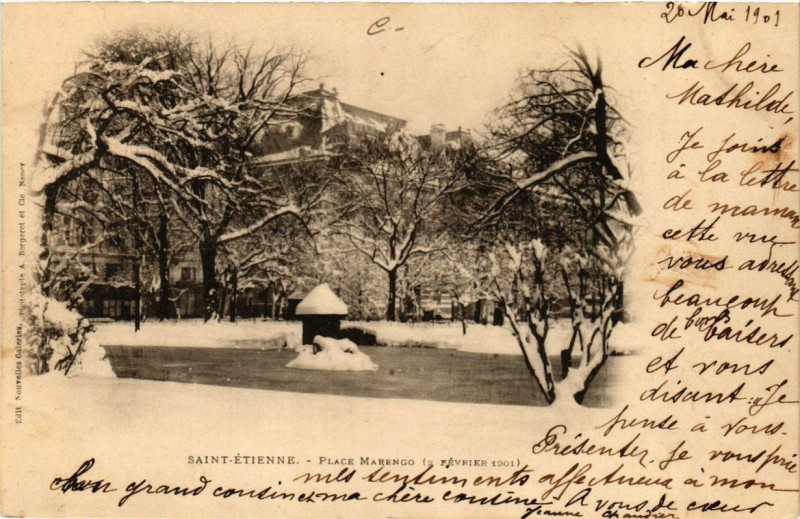 C-
20 Mai 1901
Ma chère
Mathilde,
Je joins
à la lettre
de maman
cette vue
vous
beaucoup
de bons baisers
et vous
disant: "Je
pense à vous.
Présenter, je vous prie
mes sentiments affectueux à mon
bon grand cousin et ma chère cousine. A vous de cœur
Jeanne
SAINT-ÉTIENNE. - PLACE MARENGO (2 FÉVRIER 1901)
Edit Nouvelles Galeries, phototypie A. Bergeret et Cie, Nancy